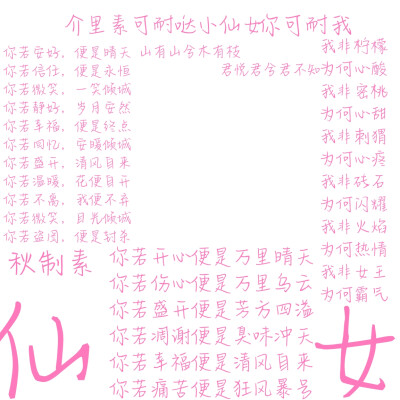 介里素可耐哒小仙女你可耐我
你若安好，便是晴天
山有山兮木有枝
你若信任，便是永恒
君悦君兮君不知
你若微笑，一笑倾城
你若静好，岁月安然
你若幸福，便是终点
你若回忆，安暖倾城
你若盛开，清风自来
你若温暖，花便自开
你若不离，我便不弃
你若微笑，目光倾城
你若盗图，便是封杀
我非柠檬
为何心酸
我非蜜桃
为何心甜
我非刺猬
为何心疼
我非砖石
为何闪耀
我非火焰
为何热情
我非女王
为何霸气
秋制素
你若开心便是万里晴天
你若伤心便是万里乌云
你若盛开便是芳方四溢
你若凋谢便是臭味冲天
你若幸福便是清风自来
你若痛苦便是狂风暴号
仙女